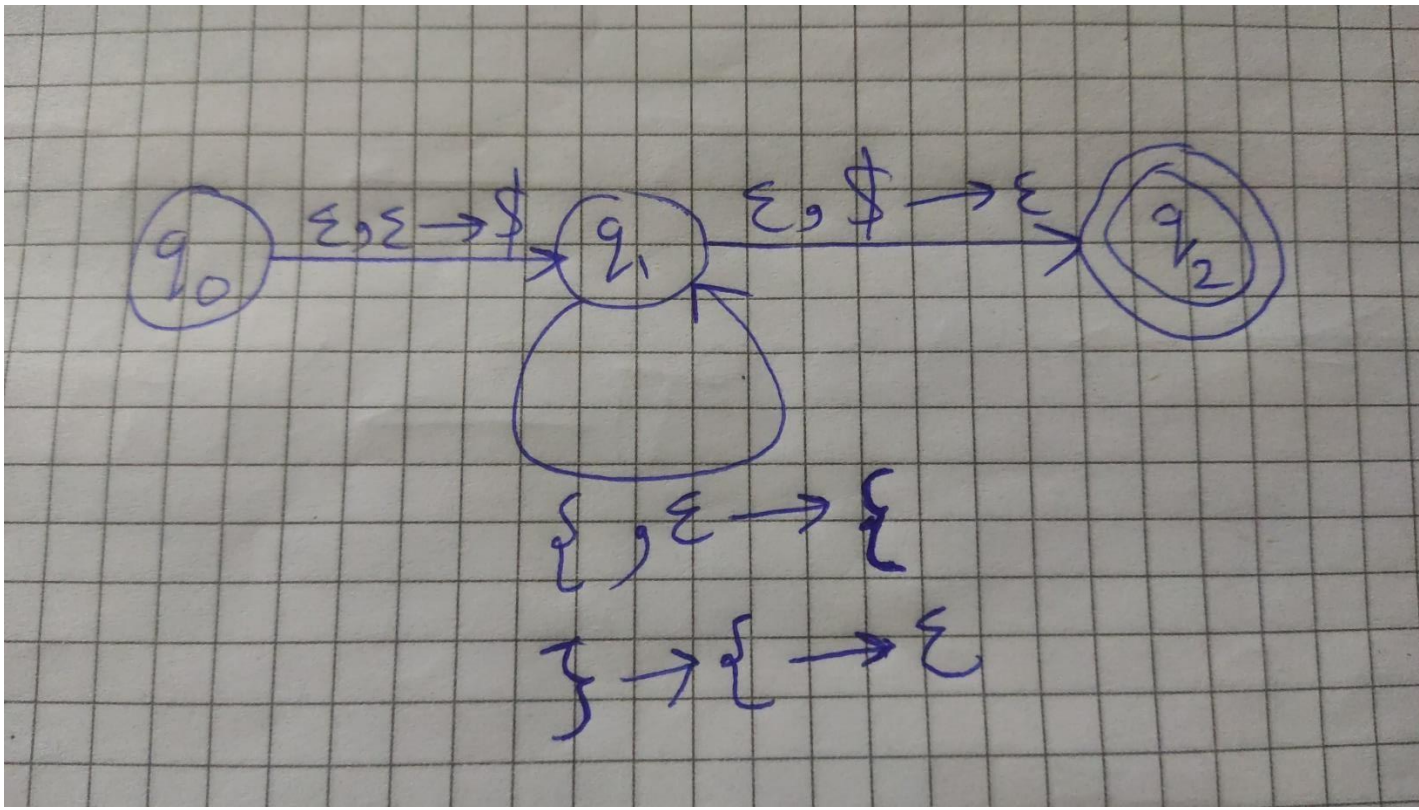 q0
ε,ε→$
q1
ε,$→ε
q2
{,ε→{
}→{→ε